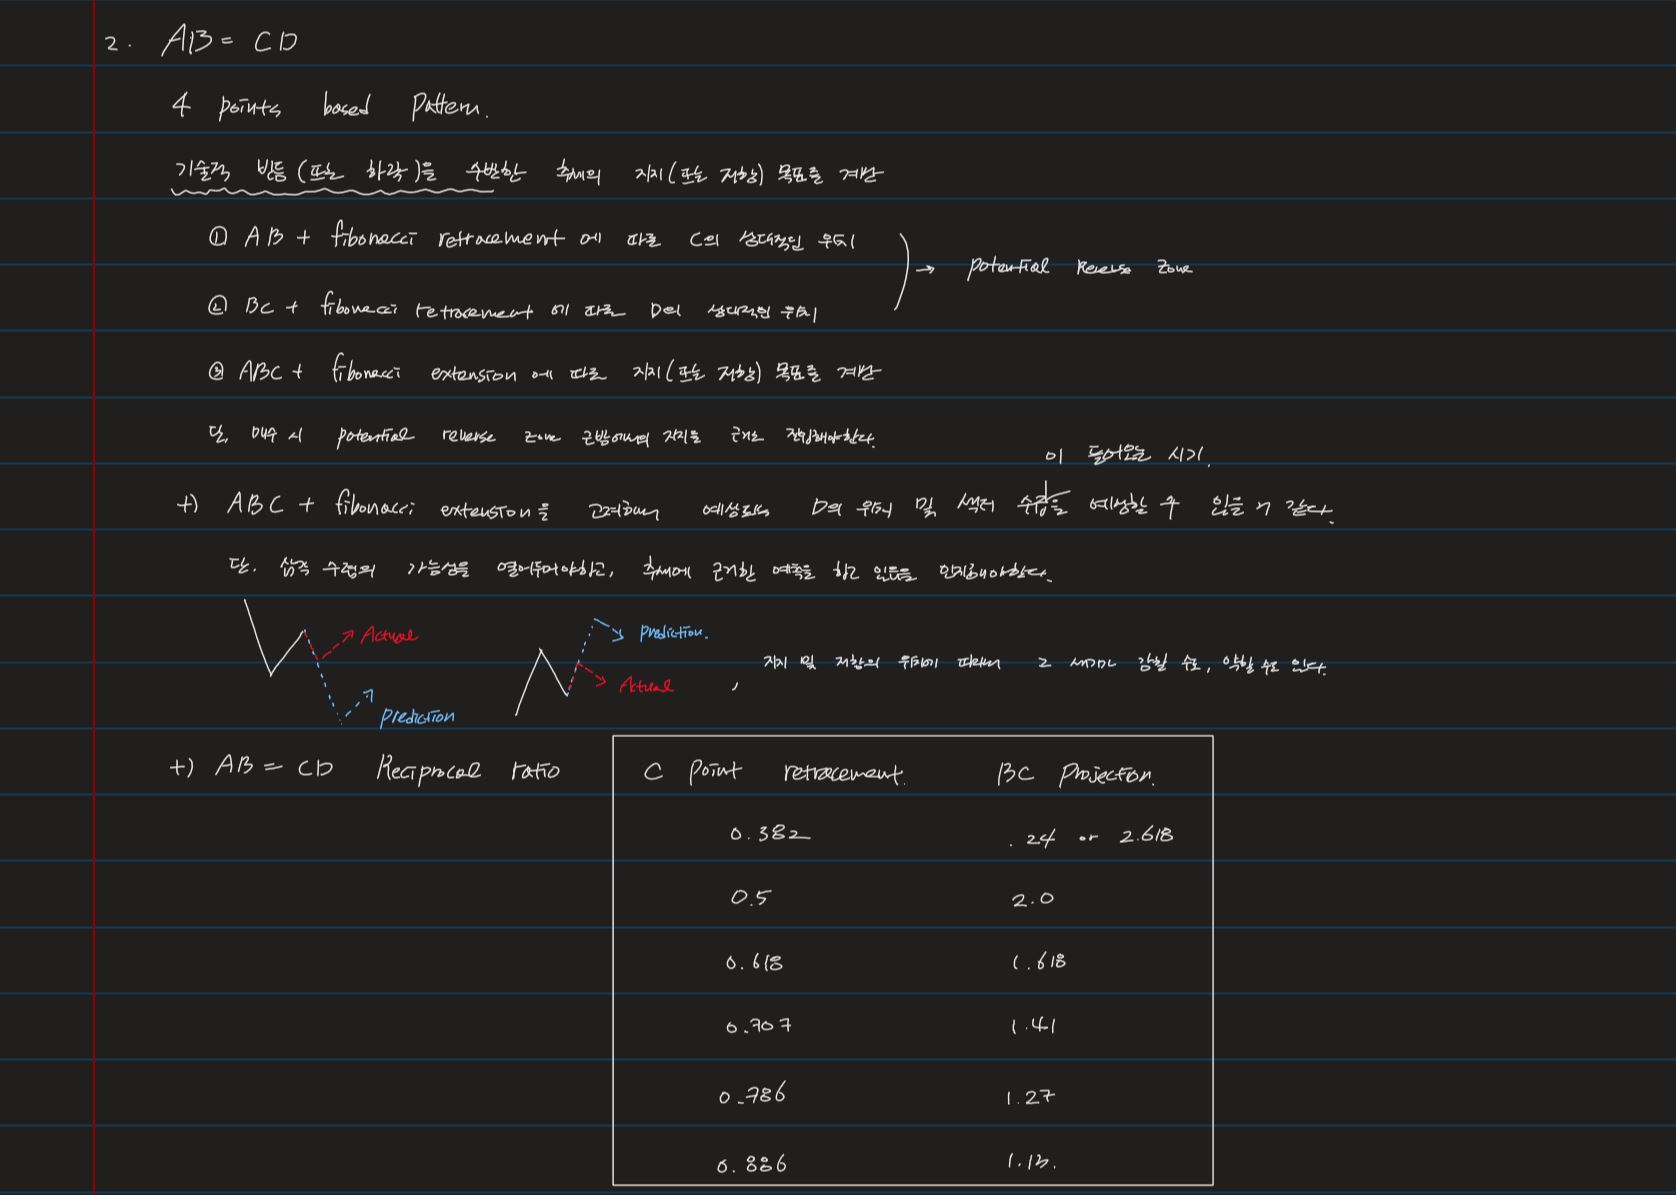 2. AB = CD
4 points based Pattern.
기술적 반등 (또는 하락)을 수반한 추세의 지지(또는 저항) 목표를 계산
① AB + fibonacci retracement에 따른 C의 상대적인 위치
② BC + fibonacci retracement에 따른 D의 상대적인 위치
→ potential reverse zone
③ ABC + fibonacci extension에 따른 지지(또는 저항) 목표를 계산
단, 매수 시 potential reverse zone 근방에서의 지지를 근거로 진입해야한다.
이 들어오는 시기.
+) ABC + fibonacci extension을 고려해서 예상되는 D의 위치 및 섹터 수급을 예상할 수 있을 것 같다.
단, 삼각 수렴의 가능성을 열어두어야하고, 추세에 근거한 예측을 하고 있음을 인지해야한다.
Actual
prediction
prediction.
Actual
, 지지 및 저항의 위치에 따라서 그 세기가 강할 수도, 약할 수도 있다.
+) AB = CD Reciprocal ratio
C point retracement. BC projection.
0.382 .24 or 2.618
0.5 2.0
0.618 1.618
0.707 1.41
0.786 1.27
0.886 1.13.